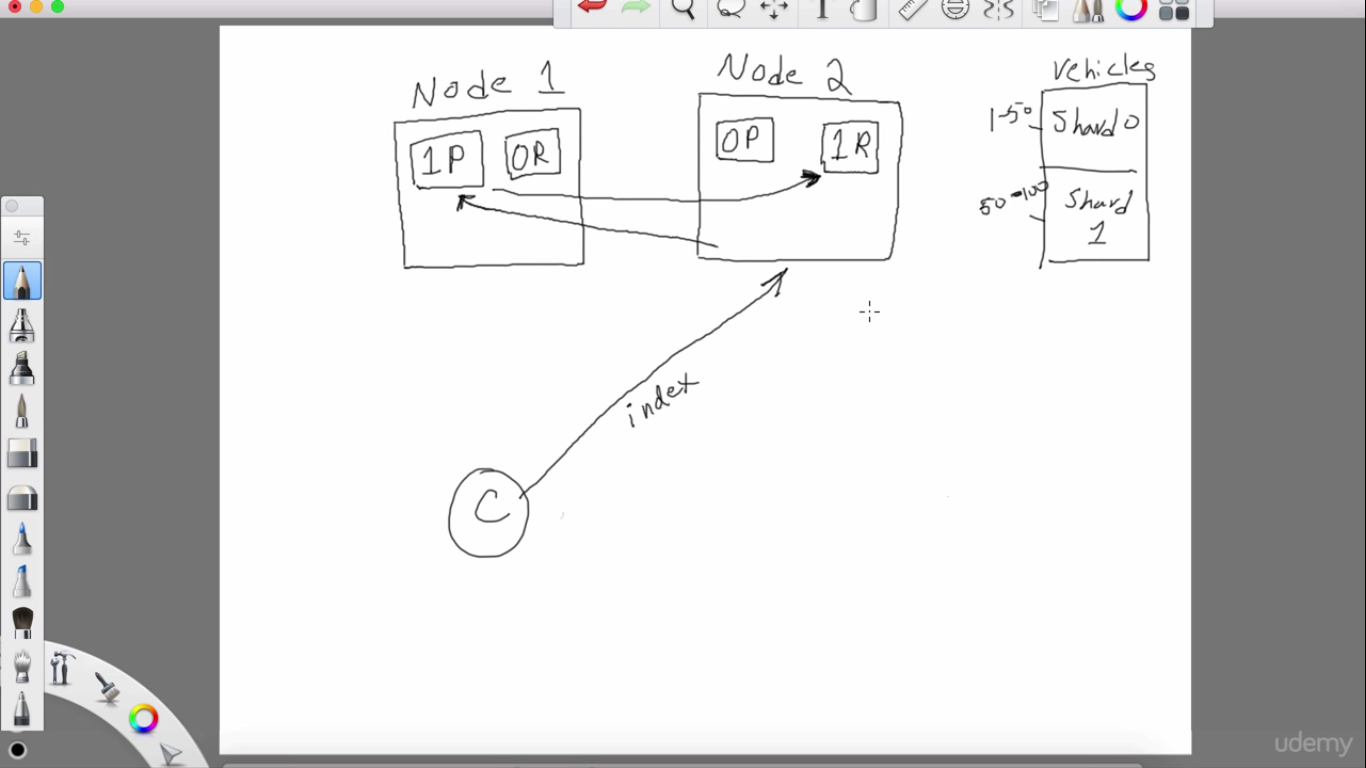 Node 1
1P
0R
Node 2
0P
1R
Vehicles
1-50
Shard 0
50-100
Shard
1
index
C
T
udemy